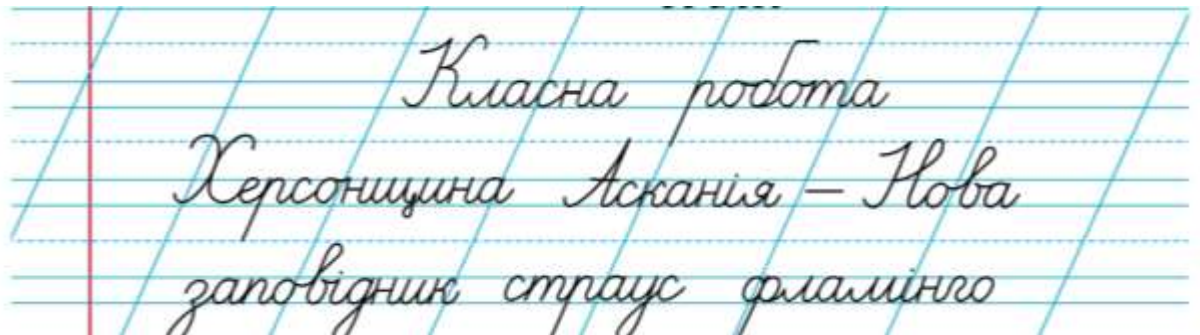 Класна робота
Херсонщина Асканія – Нова
заповідник страус фламінго